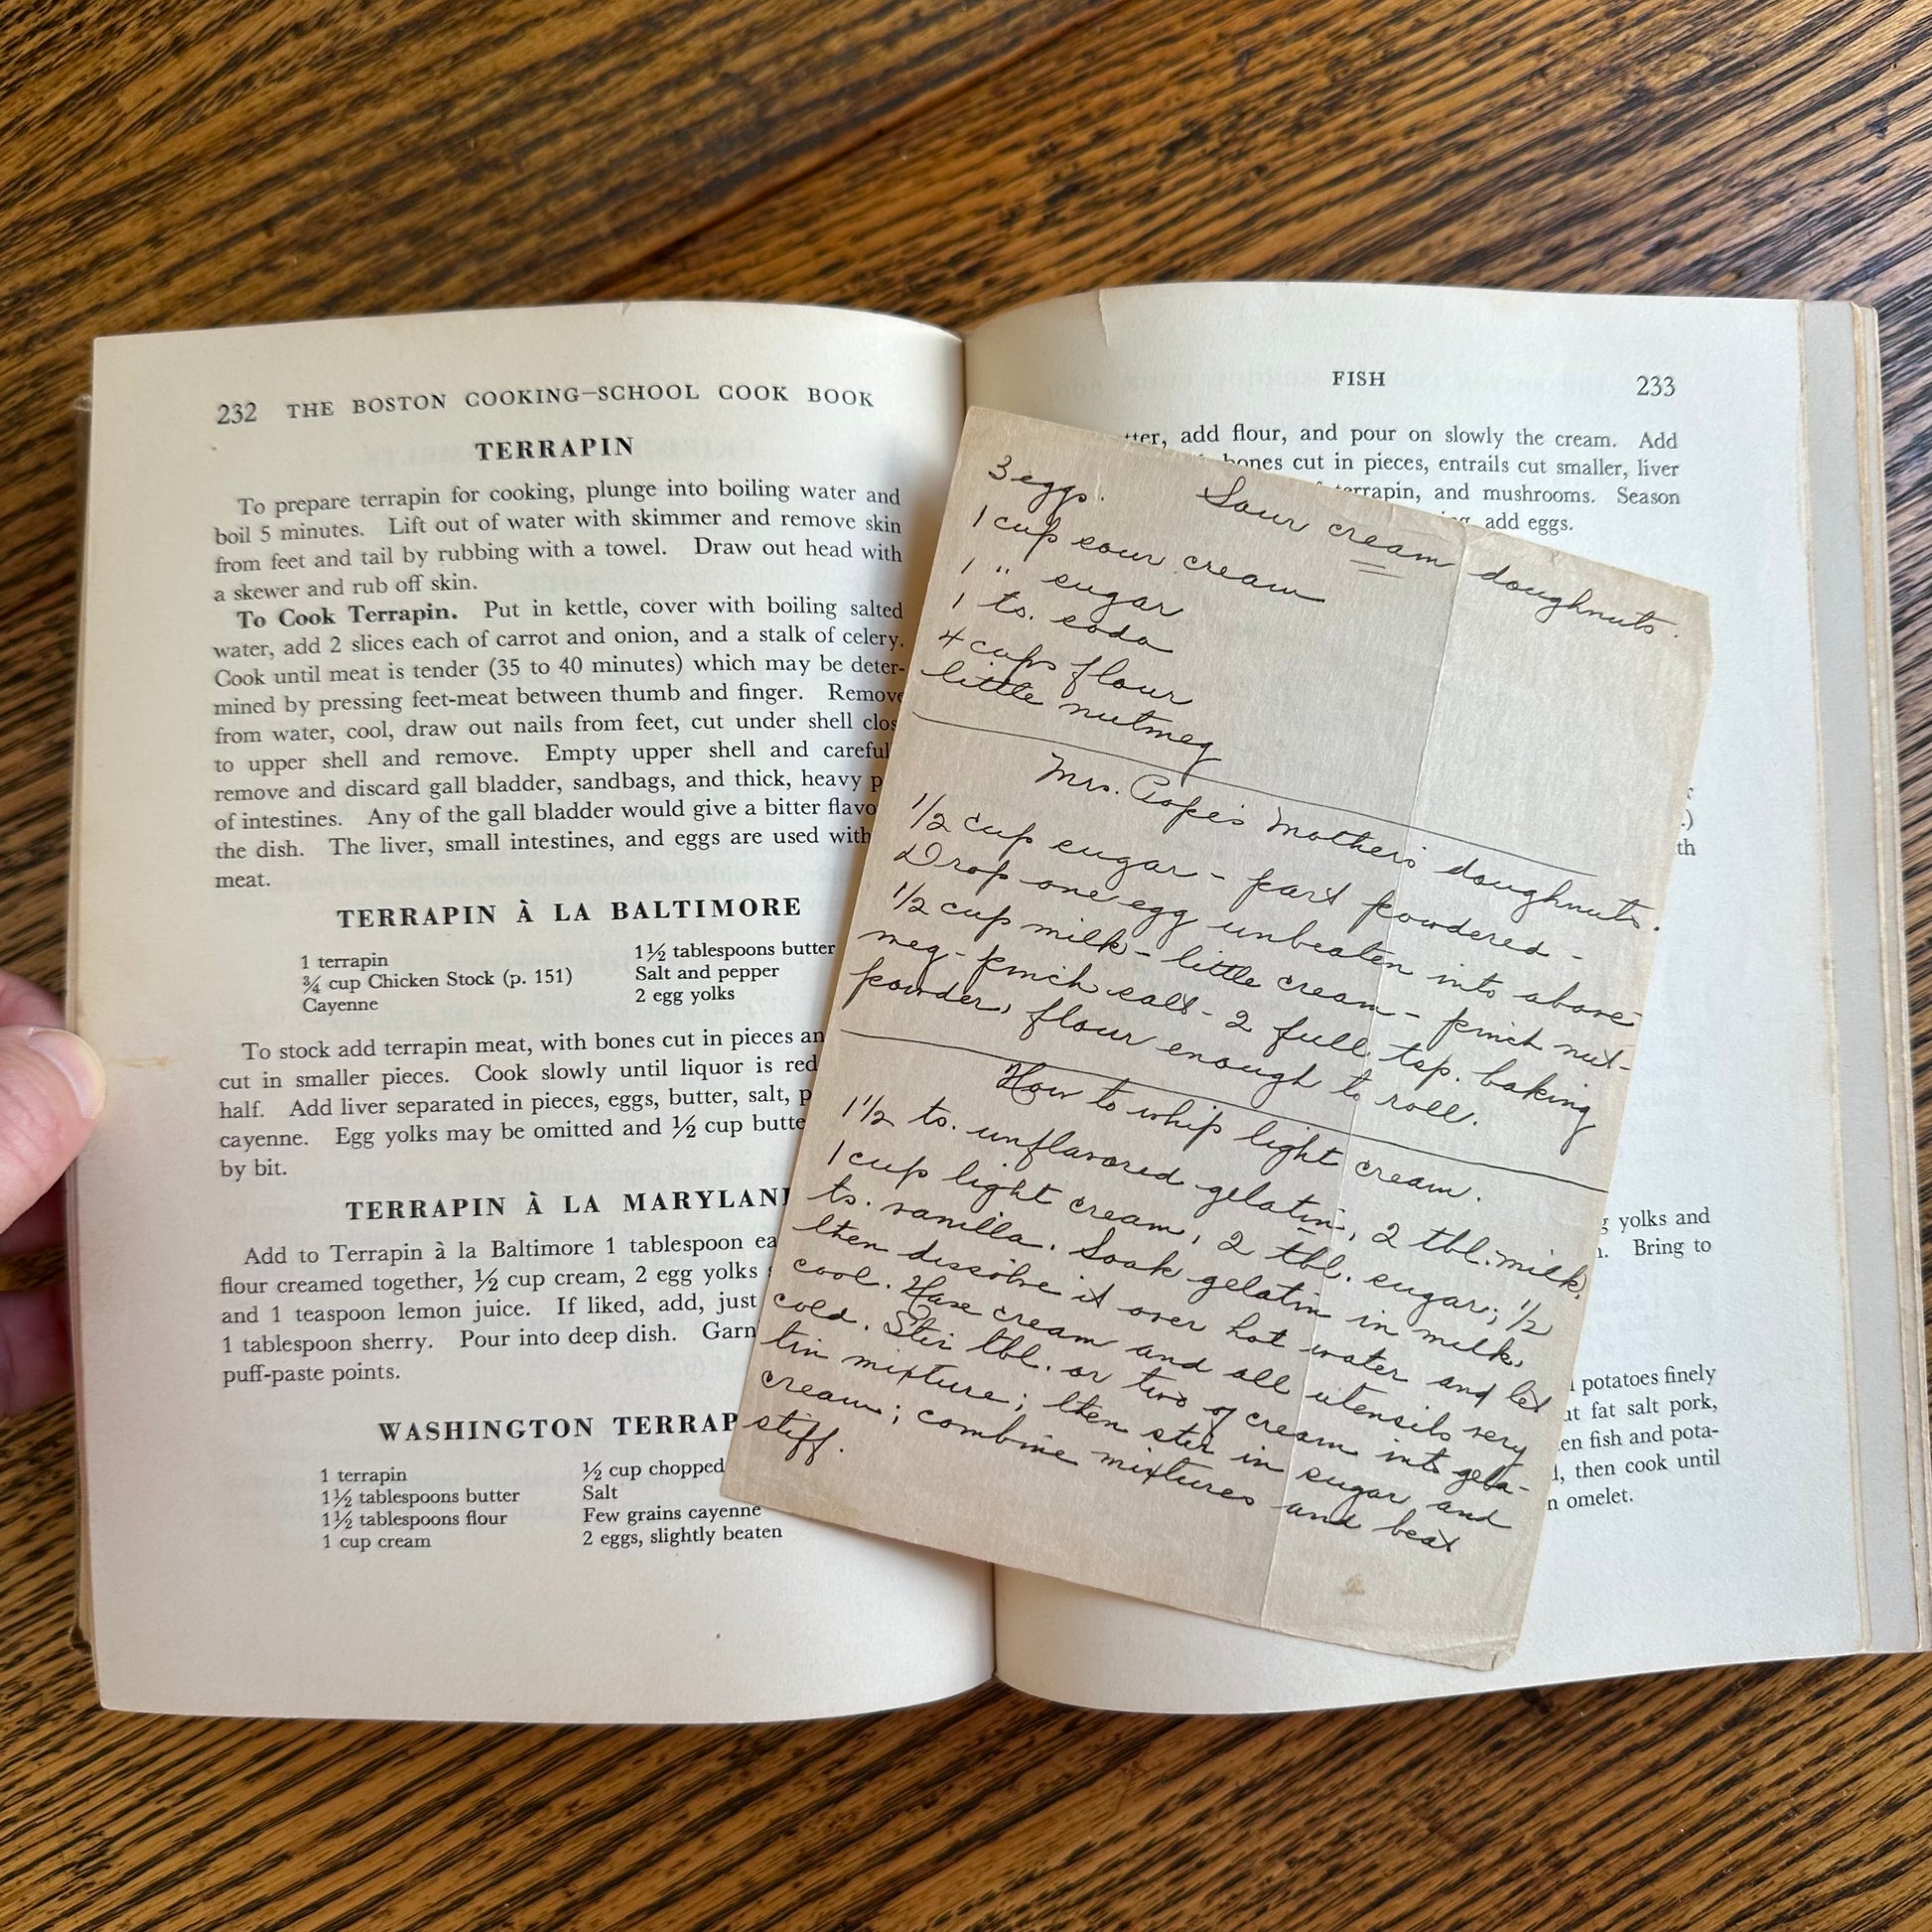 232 THE BOSTON COOKING–SCHOOL COOK BOOK
TERRAPIN
To prepare terrapin for cooking, plunge into boiling water and
boil 5 minutes. Lift out of water with skimmer and remove skin
from feet and tail by rubbing with a towel. Draw out head with
a skewer and rub off skin.
To Cook Terrapin. Put in kettle, cover with boiling salted
water, add 2 slices each of carrot and onion, and a stalk of celery.
Cook until meat is tender (35 to 40 minutes) which may be deter-
mined by pressing feet-meat between thumb and finger. Remove
from water, cool, draw out nails from feet, cut under shell clos
to upper shell and remove. Empty upper shell and careful
remove and discard gall bladder, sandbags, and thick, heavy p
of intestines. Any of the gall bladder would give a bitter flavo
the dish. The liver, small intestines, and eggs are used with
meat.
TERRAPIN À LA BALTIMORE
1 terrapin 1½ tablespoons butter
¾ cup Chicken Stock (p. 151) Salt and pepper
Cayenne 2 egg yolks
To stock add terrapin meat, with bones cut in pieces an
cut in smaller pieces. Cook slowly until liquor is red
half. Add liver separated in pieces, eggs, butter, salt, p
cayenne. Egg yolks may be omitted and ½ cup butte
by bit.
TERRAPIN À LA MARYLAN
Add to Terrapin à la Baltimore 1 tablespoon ea
flour creamed together, ½ cup cream, 2 egg yolks
and 1 teaspoon lemon juice. If liked, add, just
1 tablespoon sherry. Pour into deep dish. Garn
puff-paste points.
WASHINGTON TERRAP
1 terrapin ½ cup chopped
1½ tablespoons butter Salt
1½ tablespoons flour Few grains cayenne
1 cup cream 2 eggs, slightly beaten
FISH 233
tter, add flour, and pour on slowly the cream. Add
bones cut in pieces, entrails cut smaller, liver
terrapin, and mushrooms. Season
add eggs.
Sour cream doughnuts.
3 eggs.
1 cup sour cream
1 " sugar
1 ts. soda
4 cups flour
little nutmeg
Mrs. Mother's doughnuts.
1/2 cup sugar - part powdered -
Drop one egg unbeaten into above
1/2 cup milk - little cream - pinch nut-
meg - pinch salt - 2 full tsp. baking
powder, flour enough to roll.
How to whip light cream.
1 1/2 ts. unflavored gelatin, 2 tbl. milk,
1 cup light cream, 2 tbl. sugar; 1/2
ts. vanilla. Soak gelatin in milk,
then dissolve it over hot water and let
cool. Have cream and all utensils very
cold. Stir tbl. or two of cream into gela-
tin mixture; then stir in sugar and
cream; combine mixtures and beat
stiff.
.)
th
yolks and
Bring to
potatoes finely
fat salt pork,
en fish and pota-
, then cook until
omelet.